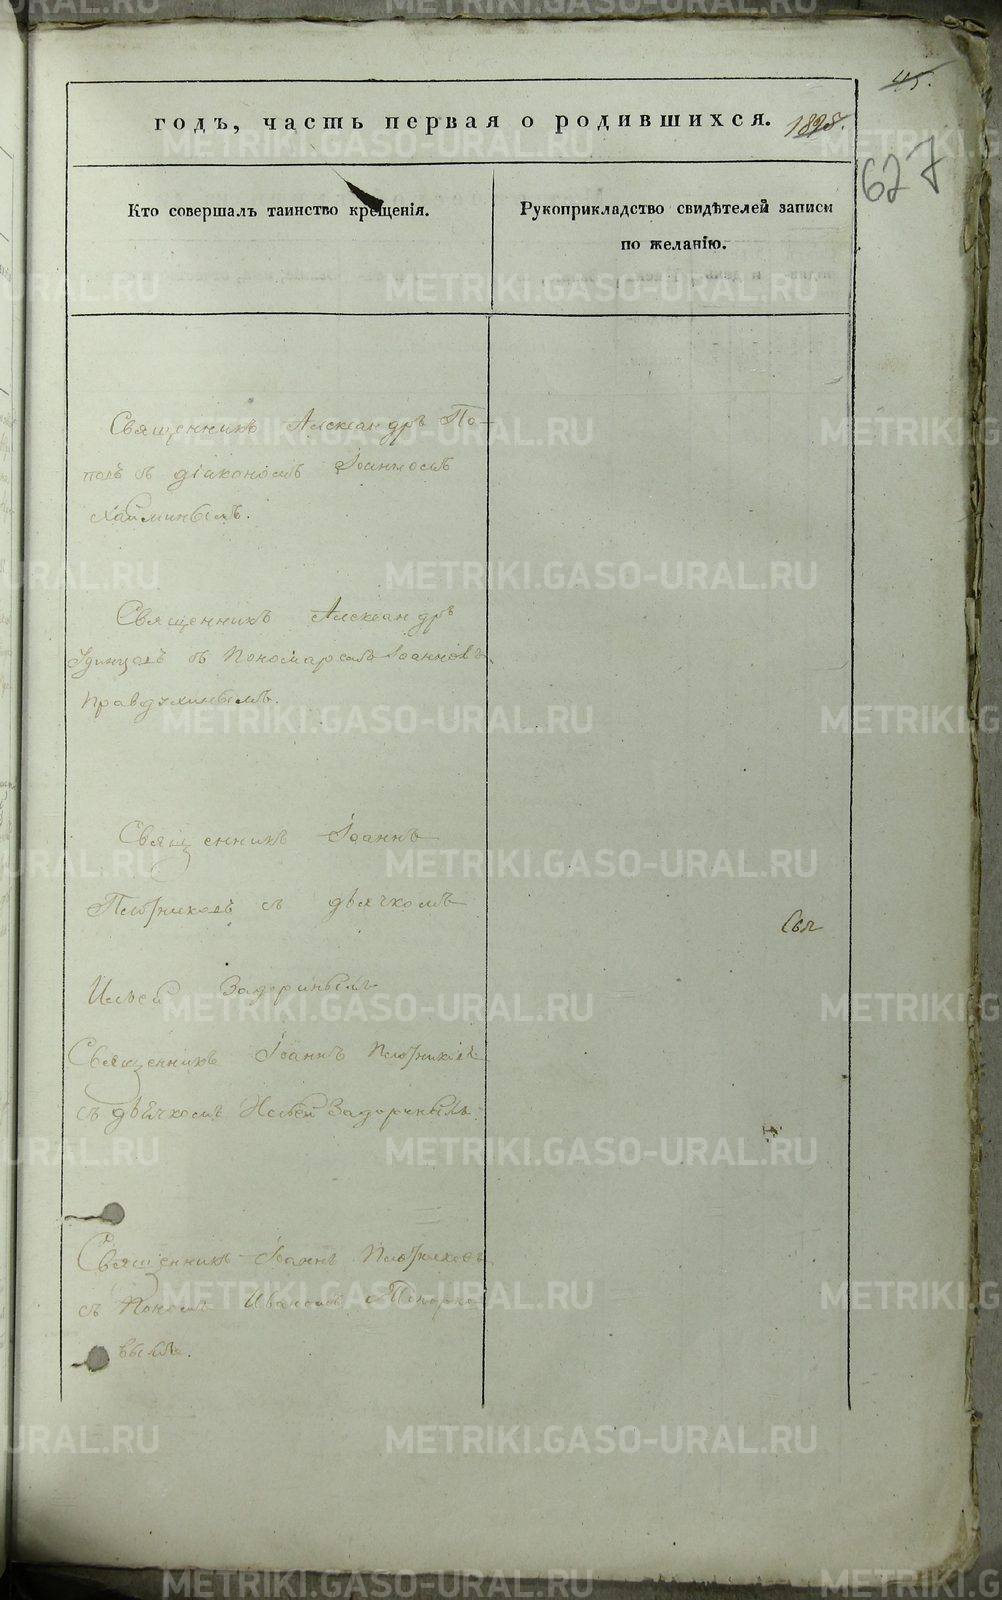 45.
годъ, часть первая о родившихся.
627
Кто совершалъ таинство крещенія.
Рукоприкладство свидѣтелей записи
по желанію.
Священникъ Александръ По-
повъ съ діакономъ Іоанномъ
Священникъ Александръ
съ Пономаремъ
Правдухинымъ.
Священникъ Іоаннъ
Плотниковъ съ дьячкомъ
Свя
Ильей Задоринымъ
Священникъ Іоаннъ Плотниковъ
съ дьячкомъ Ильей Задоринымъ.
Священникъ Іоаннъ Плотниковъ
съ Иваномъ
METRIKI.GASO-URAL.RU